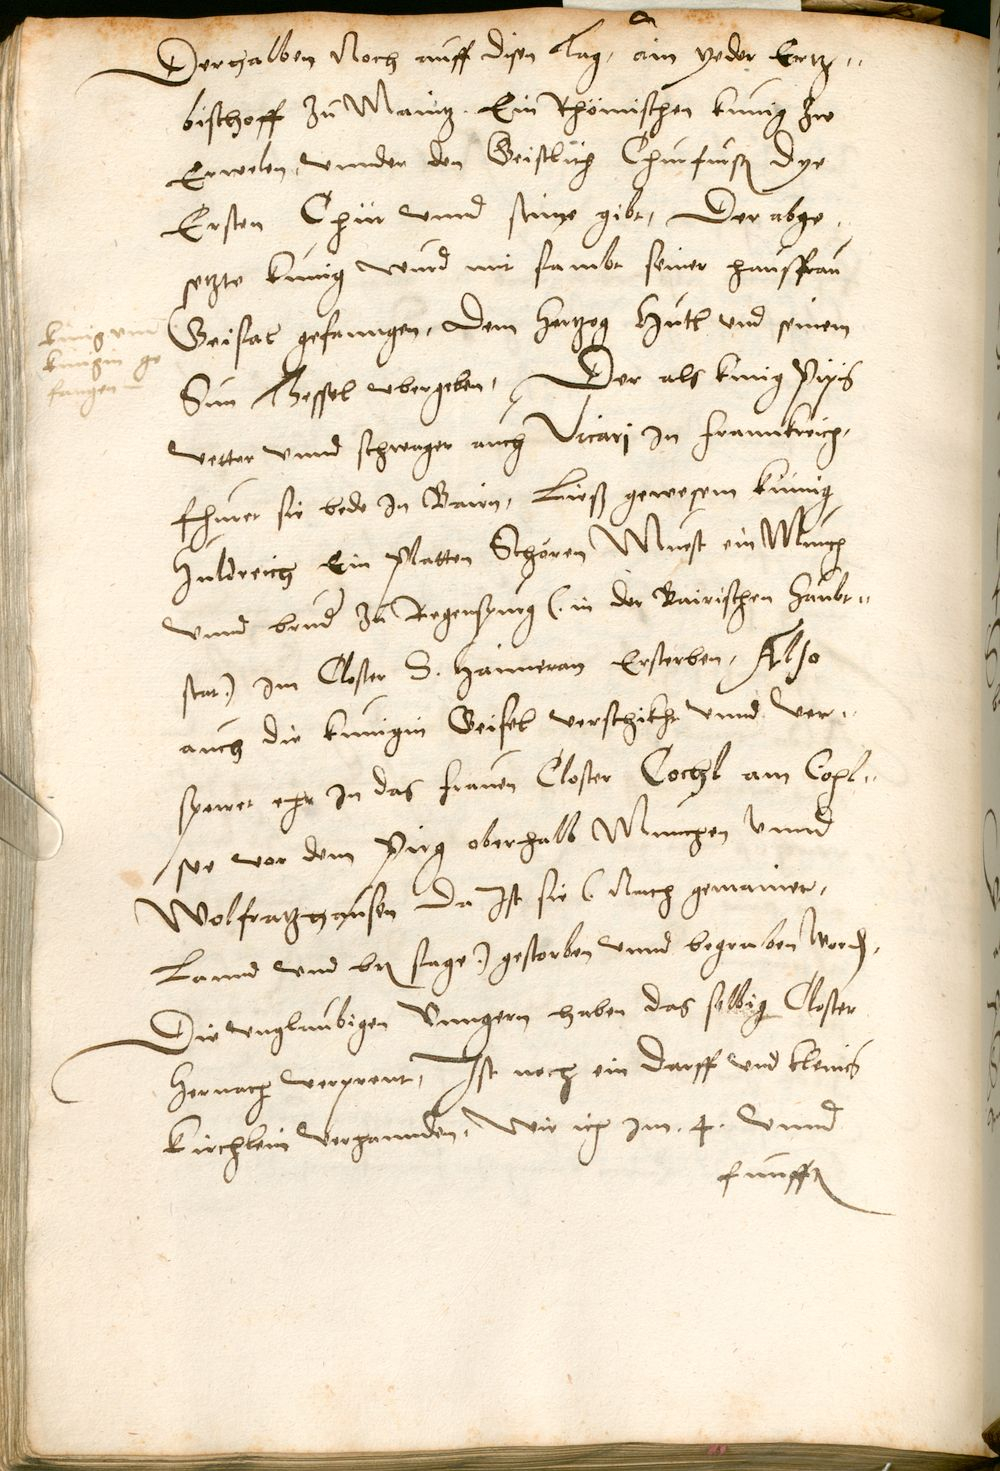 Derhalben Noch auff disen Tag, ain yeder Ertz=
bischoff Zu Maintz. Ein Rhömischen kunig zw
Erwelen, vnnder den Geistlich Churfurst Dye
Ersten Chur vnnd stime gibt, Der abge=
setzte kunig wurd mit sambt seiner hausfrau
Geisal gefanngen, Dem hertzog Hutl vnd seinem
kunig vnd
kunigin ge
fangen
Sun Thessel vbergeben, Der als kunig Pipis
vetter vnnd schwager auch Vicarj in Frannkreich,
fhuret sie bede In Bairn, Ließ gewesem kunig
Huldreich Ein Platten Schören Muest ein Munch
vnnd brud Zu Regenspurg (in der Bairischen Haubt=
stat) im Closter S. Haimeran Ersterben, Also
auch die kunigin Geisel verschikht vnnd ver=
spewet ehr In das frauen Closter Cochl am Cohl=
see vor dem Pirg oberhalb Munchen vnnd
Wolfratzhausen Da Ist sie (Nach gemainer,
Lannd vnd sage) gestorben vnnd begraben Word,
Die vnglaubigen Vnngern haben das selbig Closter
Hernach verprent, Ist noch ein Darff vnd kleins
kirchlein verhannden, Wie ich im .4. vnnd
funfft